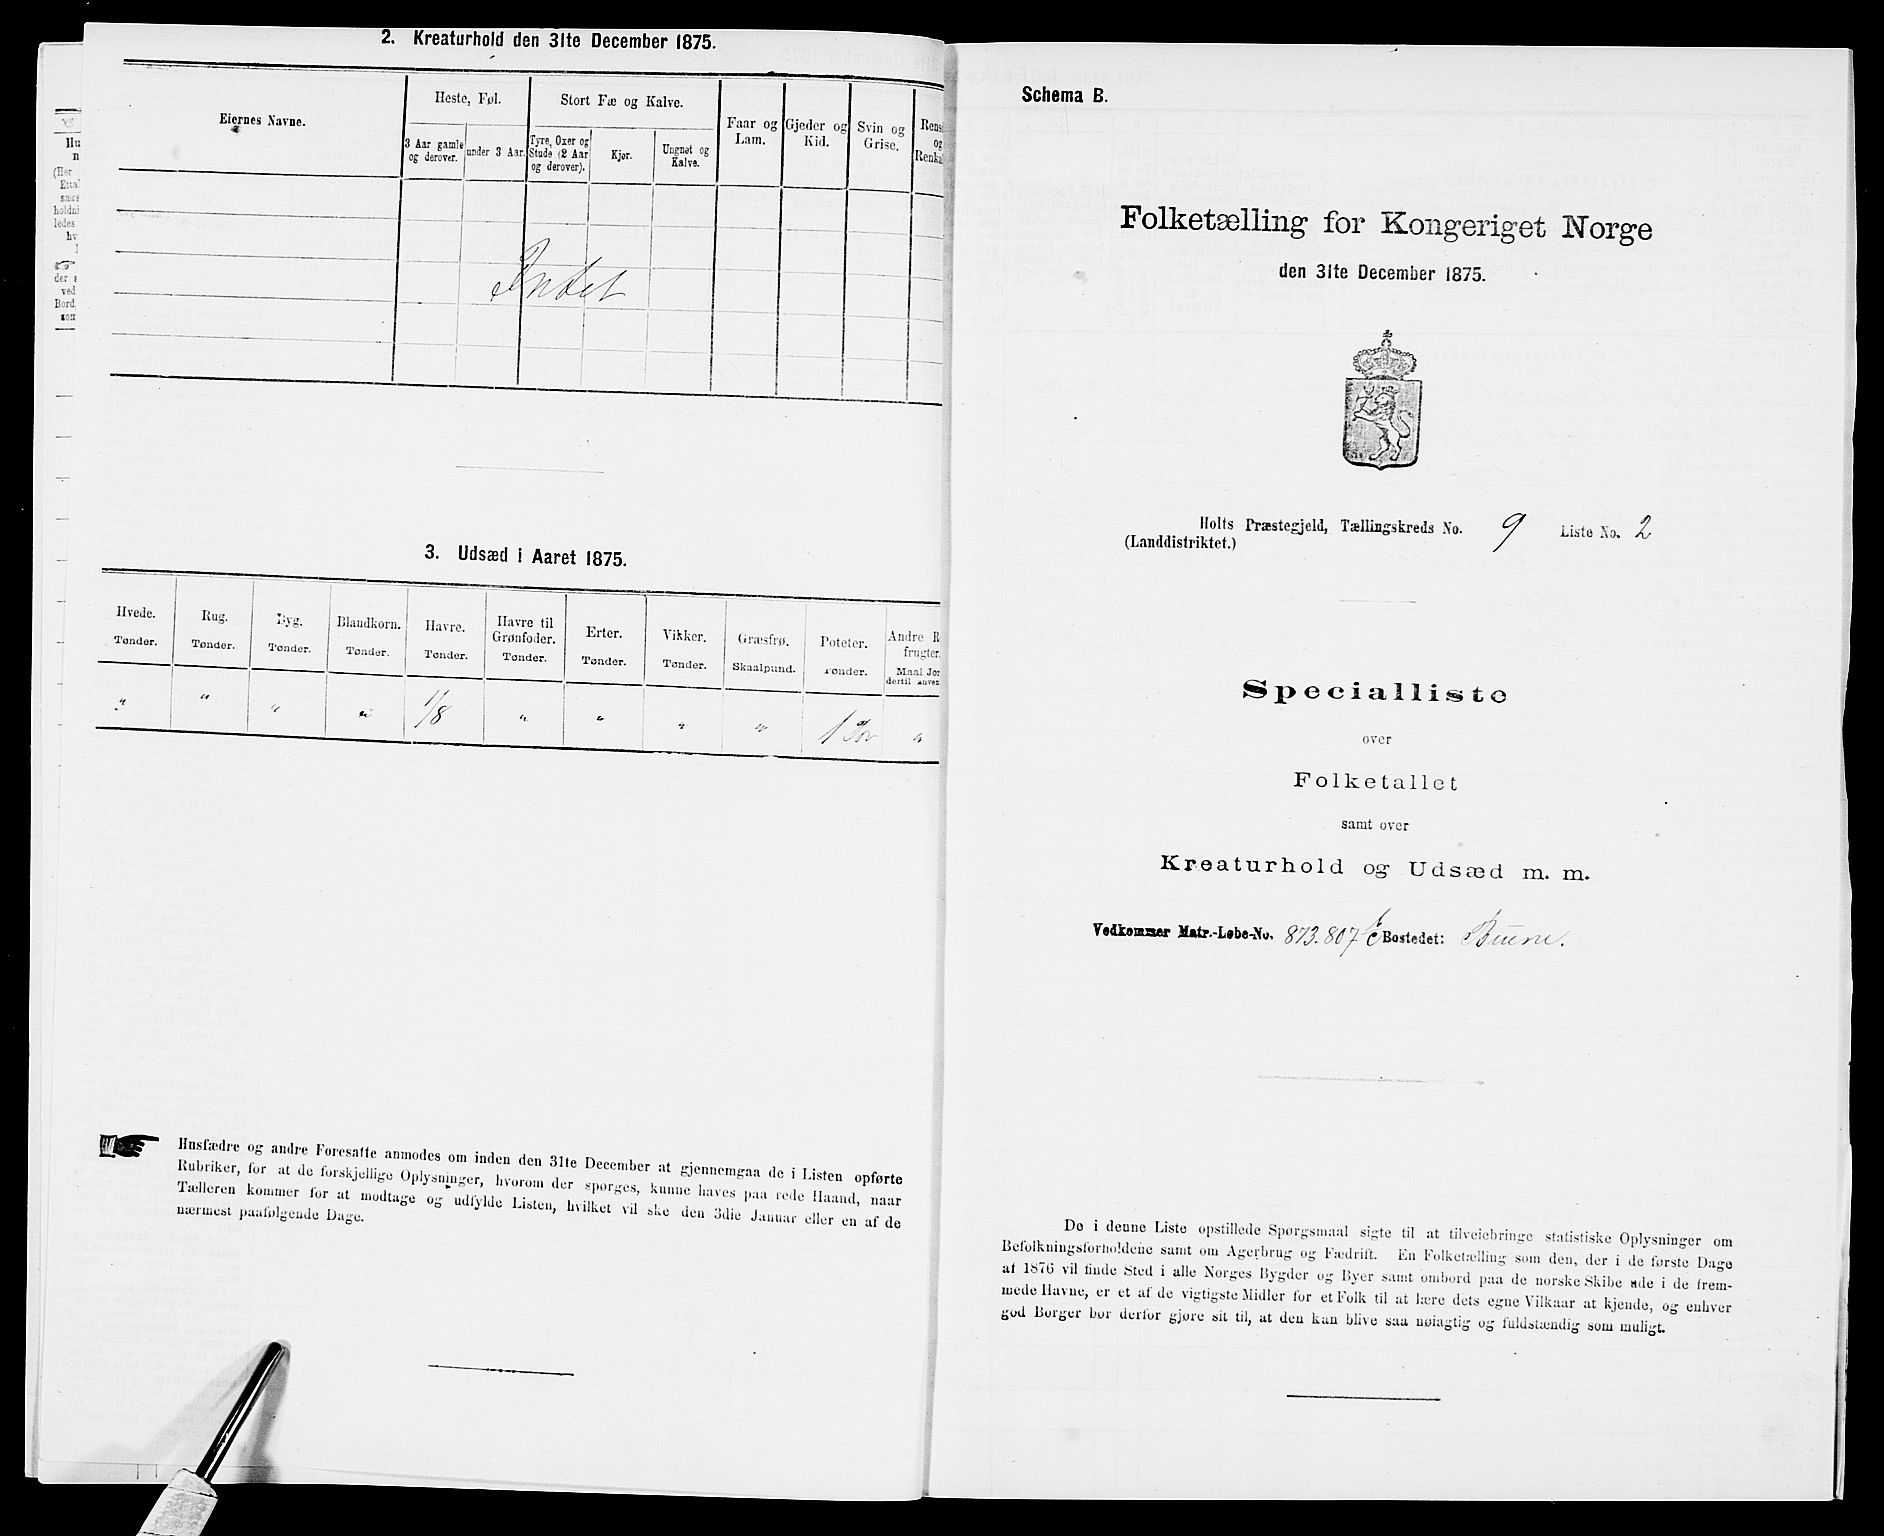 2. Kreaturhold den 31te December 1875.
Eiernes Navne.
Heste, Føl.
Stort Fæ og Kalve.
Faar og
Lam.
Gjeder og
Kid.
Svin og
Grise.
og
3 Aar gamle
og derover.
under 3 Aar.
Tyre, Oxer og
Stude (2 Aar
og derover).
Kjør.
Ungnøt og
Kalve.
Intet
3. Udsæd i Aaret 1875.
Hvede. Rug. Byg. Blandkorn. Havre. Havre til Grønfoder. Erter. Vikker. Græsfrø. Poteter. Andre R
frugter.
Tønder. Tønder. Tønder. Tønder. Tønder. Tønder. Tønder. Tønder. Skaalpund. Tønder. Maal Jor
dertil anven
" " " " 1/8 " " " " 1 "
Husfædre og andre Foresatte anmodes om inden den 31te December at gjennemgaa de i Listen opførte
Rubriker, for at de forskjellige Oplysninger, hvorom der spørges, kunne haves paa rede Haand, naar
Tælleren kommer for at modtage og udfylde Listen, hvilket vil ske den 3die Januar eller en af de
nærmest paafølgende Dage.
Schema B.
Folketælling for Kongeriget Norge
den 31te December 1875.
Holts Præstegjeld, Tællingskreds No. 9 Liste No. 2
(Landdistriktet.)
Specialliste
over
Folketallet
samt over
Kreaturhold og Udsæd m. m.
Vedkommer Matr.-Løbe-No. 873.807 Bostedet:
De i denne Liste opstillede Spørgsmaal sigte til at tilveiebringe statistiske Oplysninger om
Befolkningsforholdene samt om Agerbrug og Fædrift. En Folketælling som den, der i de første Dage
af 1876 vil finde Sted i alle Norges Bygder og Byer samt ombord paa de norske Skibe ude i de frem-
mede Havne, er et af de vigtigste Midler for et Folk til at lære dets egne Vilkaar at kjende, og enhver
god Borger bør derfor gjøre sit til, at den kan blive saa nøiagtig og fuldstændig som muligt.